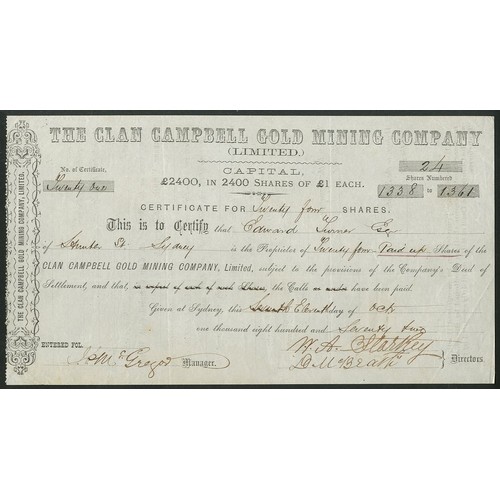 THE CLAN CAMPBELL GOLD MINING COMPANY
(LIMITED.)
CAPITAL,
£2400, IN 2400 SHARES OF £1 EACH.
No. of Certificate,
Twenty one
24
Shares Numbered
1338 to 1361
CERTIFICATE FOR Twenty four SHARES.
This is to Certify that Edward Turner Esq
of Hunter St. Sydney is the Proprietor of Twenty four Paid up Shares of the
CLAN CAMPBELL GOLD MINING COMPANY, Limited, subject to the provisions of the Company's Deed of
Settlement, and that of each of such Shares, the Calls have been paid.
Given at Sydney, this Eleventh day of Oct
one thousand eight hundred and Seventy two
ENTERED FOL.
McGregor Manager.
W. A. Starkey
D. McBeath
Directors.
THE CLAN CAMPBELL GOLD MINING COMPANY, LIMITED.